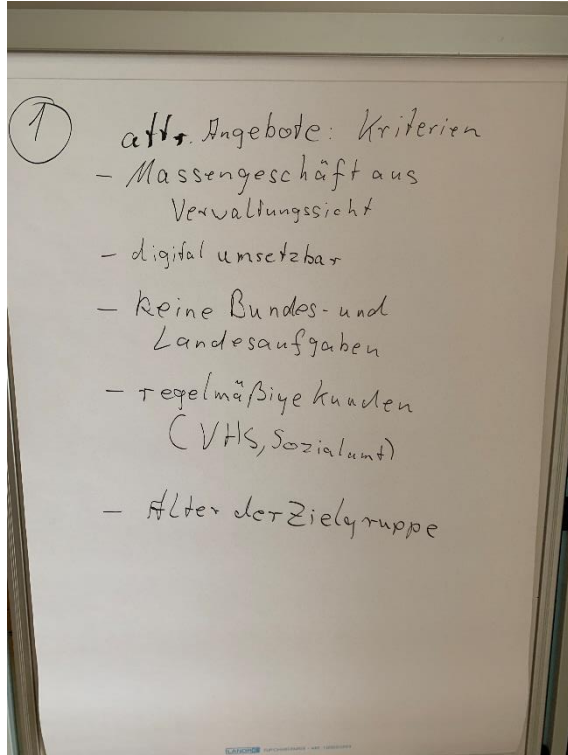 1
attr. Angebote: Kriterien
- Massengeschäft aus
Verwaltungssicht
- digital umsetzbar
- keine Bundes- und
Landesaufgaben
- regelmäßige Kunden
(VHS, Sozialamt)
- Alter der Zielgruppe
LANDRÉ